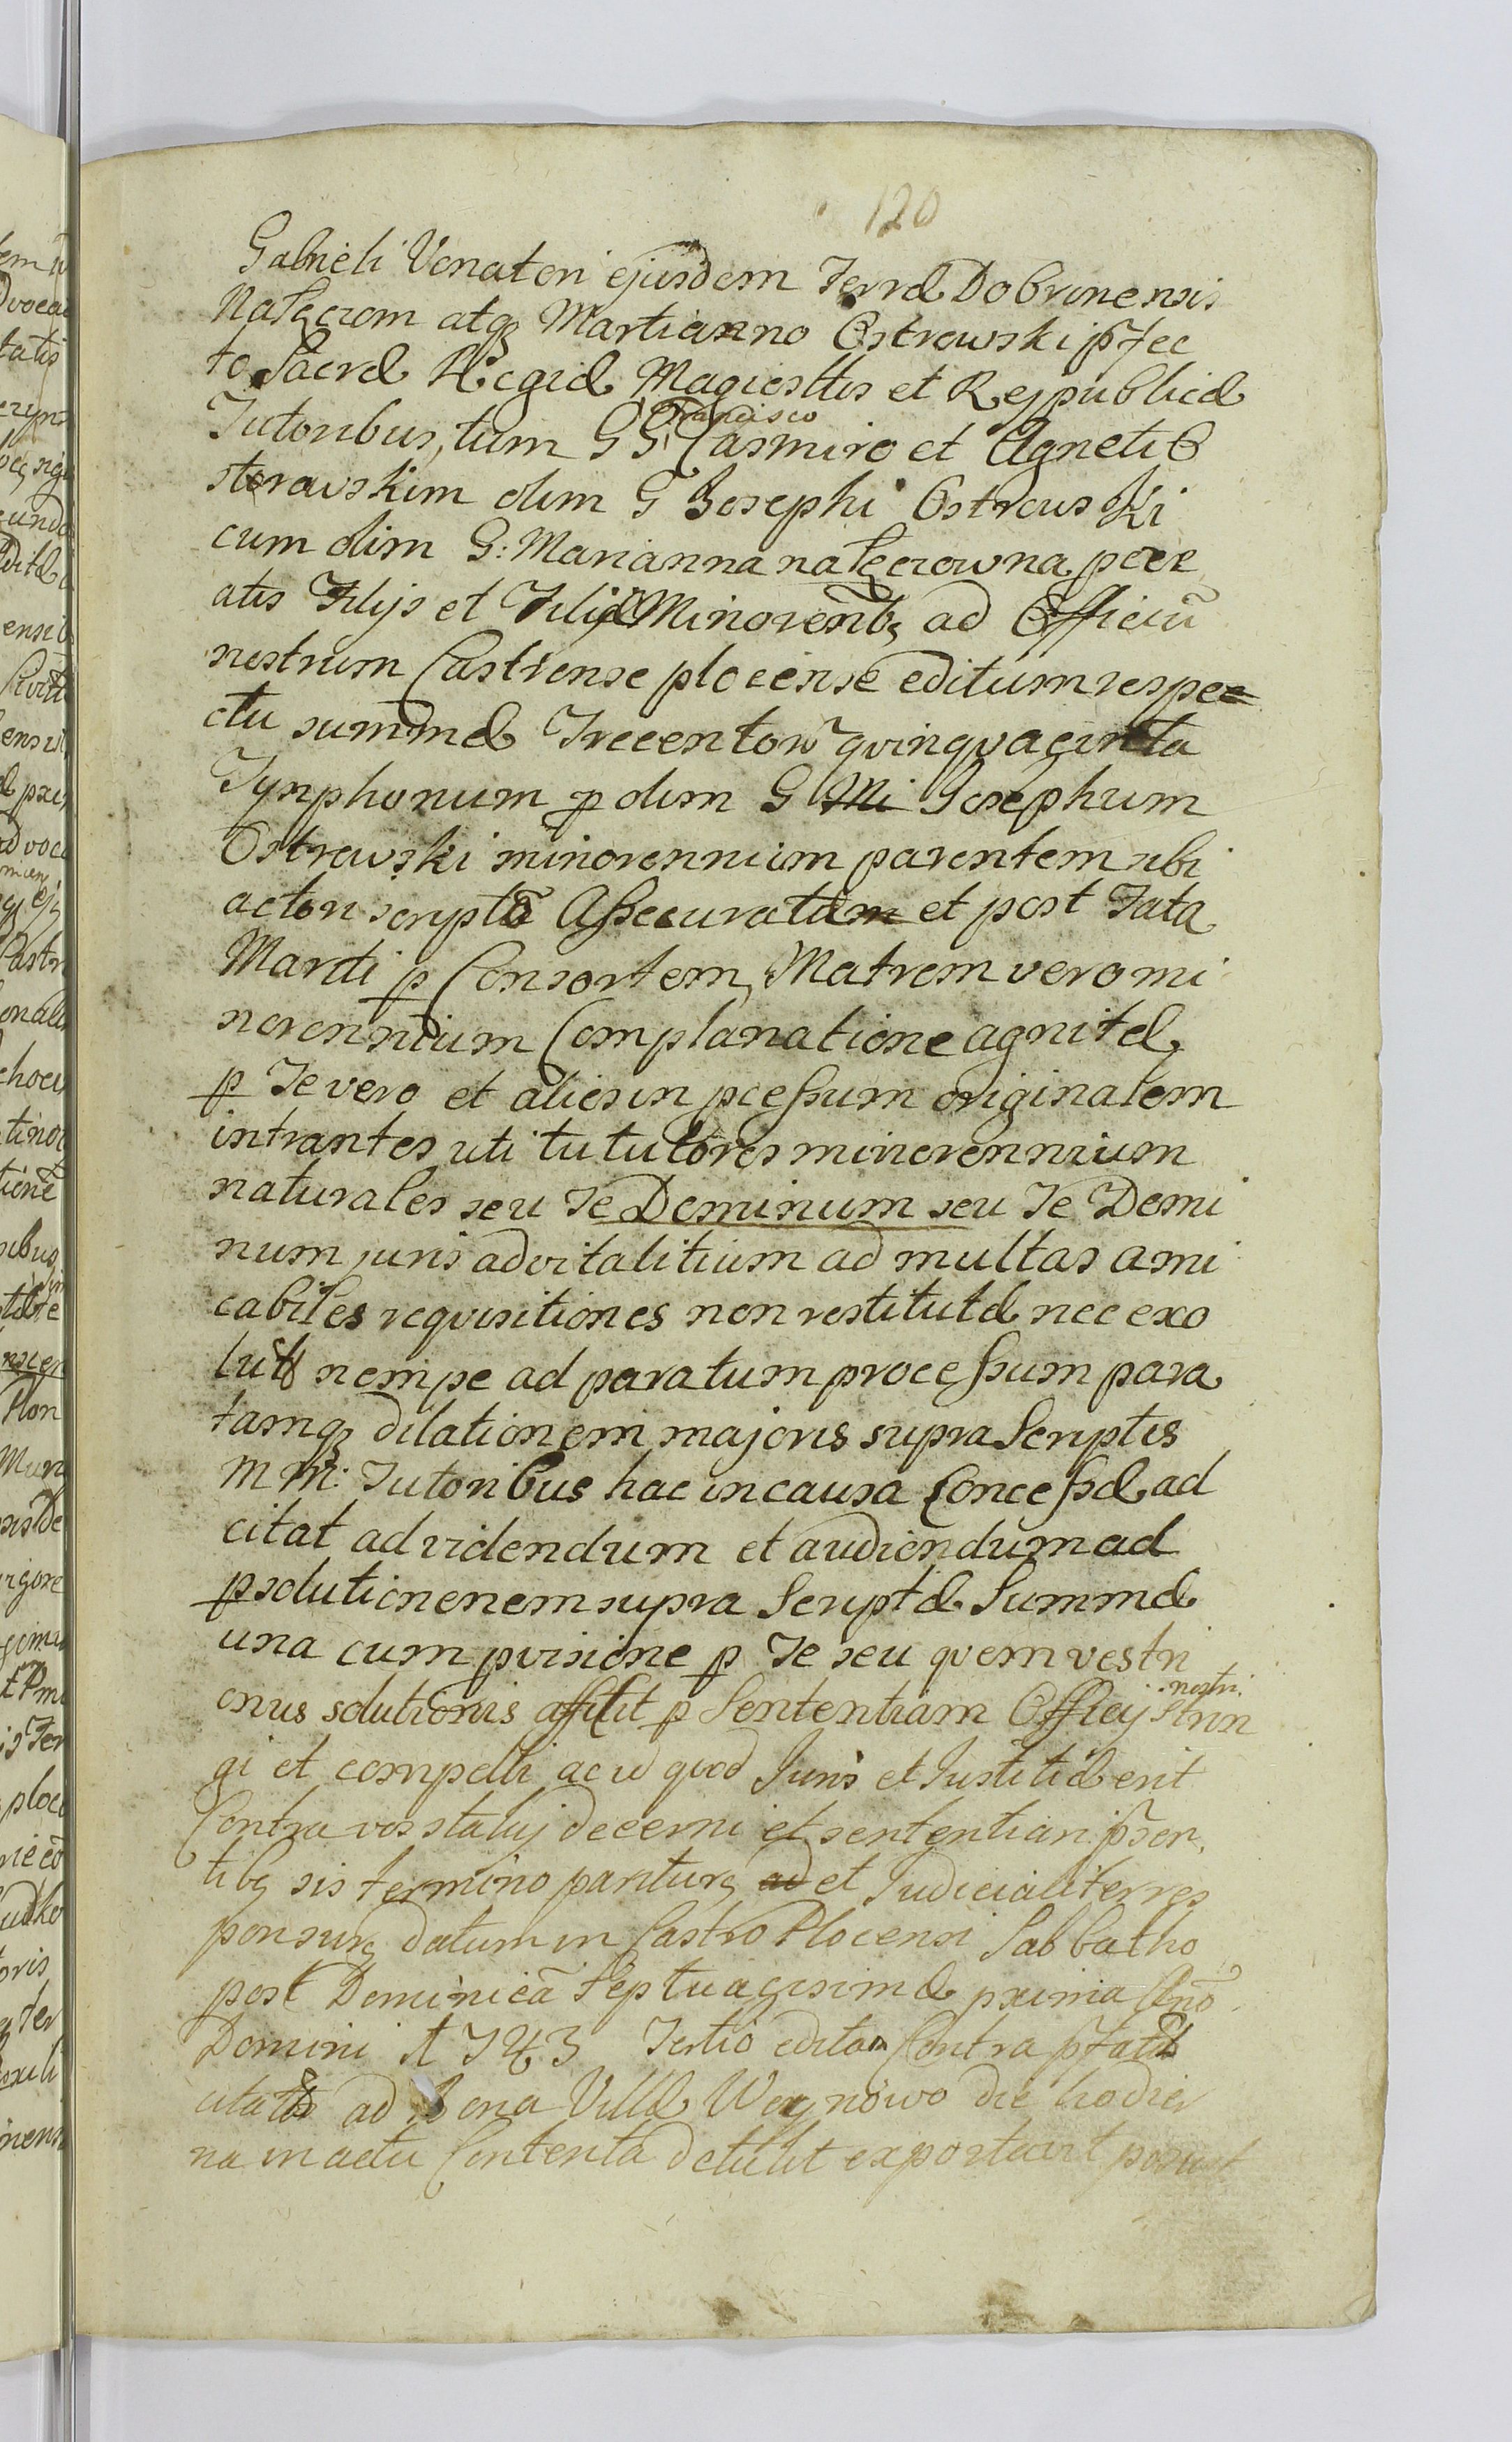 120
Gabrieli Venatori ejusdem Terræ Dobrinensis
Nałęcrom atq3 Martianno Ostrowski p̃fec
to Sacræ Regiæ Magiesttis et Rejpublicæ
Tutoribus, tum G G: Francisco Casmiro et Agneti O
sterowskim olim G Josephi Ostrowski
cum olim G: Marianna nałęcrowna pcre
atis Filijs et Filiæ Minorenb3 ad Officiũ
nostrum Castrense plocense editum respec
ctu summæ Trecentor̃ qvinqvaginta
Tynphonum p olim G Mi Josephum
Ostrowski minorennium parentem ubi
actori scriptõ Assecuratam et post Fata
Mariti p Consortem, Matrem vero mi
norennium Complanatione agnitæ
p Te vero et alios in pcessum originalem
intrantes uti tu tutores minorennium
naturales seu Te Dominum seu Te Domi
num juris advitalitium ad multas ami
cabiles reqvisitiones non restitutæ nec exo
lutæ nempe ad paratum processum para
tamq3 dilationem majoris supra Scriptis
M M: Tutoribus hac in causa Concessæ ad
citat ad videndum et audiendum ad
psolutionenem supra Scriptæ Summæ
una cum pvisione p Te seu qvem vestri
onus solutionis affilit p Sententiam Officij nostri strin
gi et compelli ac id qvod Juris et Justitiæ erit
Contra vos statuj decerni et sententiari p̃sen
tib3 sis termino paritur3 ad et Judicialiter res
ponsur3 datum in Castro Plocensi Sabbatho
post Dominicã Septuagesimæ pximа Año
Domini 1743 Tertio edita Contra p̃fatæ
citatos ad Bona Villæ Węgnowo die hodier
na in actu Contenta detulit exportavit posuit